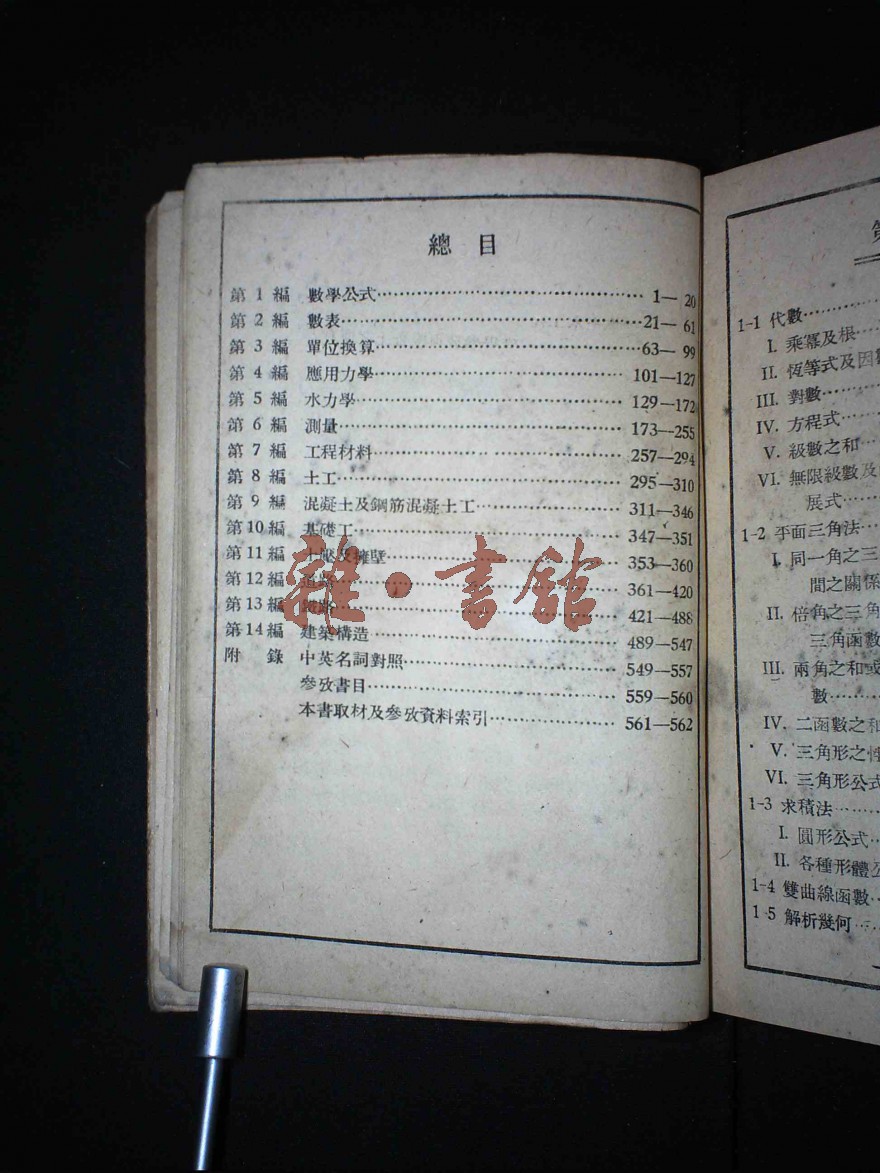 總 目
第 1 編 數學公式 1— 20
第 2 編 數表 21— 61
第 3 編 單位換算 63— 99
第 4 編 應用力學 101—127
第 5 編 水力學 129—172
第 6 編 測量 173—255
第 7 編 工程材料 257—294
第 8 編 土工 295—310
第 9 編 混凝土及鋼筋混凝土工 311—346
第10編 基礎工 347—351
第11編 土壓及擁壁 353—360
第12編 道路 361—420
第13編 鐵路 421—488
第14編 建築構造 489—547
附 錄 中英名詞對照 549—557
參攷書目 559—560
本書取材及參攷資料索引 561—562
雜·書館
第
1-1 代數
I. 乘冪及根
II. 恆等式及因
III. 對數
IV. 方程式
V. 級數之和
VI. 無限級數及
展式
1-2 平面三角法
I. 同一角之三
間之關係
II. 倍角之三角
三角函數
III. 兩角之和或
數
IV. 二函數之和
V. 三角形之性
VI. 三角形公式
1-3 求積法
I. 圓形公式
II. 各種形體公
1-4 雙曲線函數
1-5 解析幾何